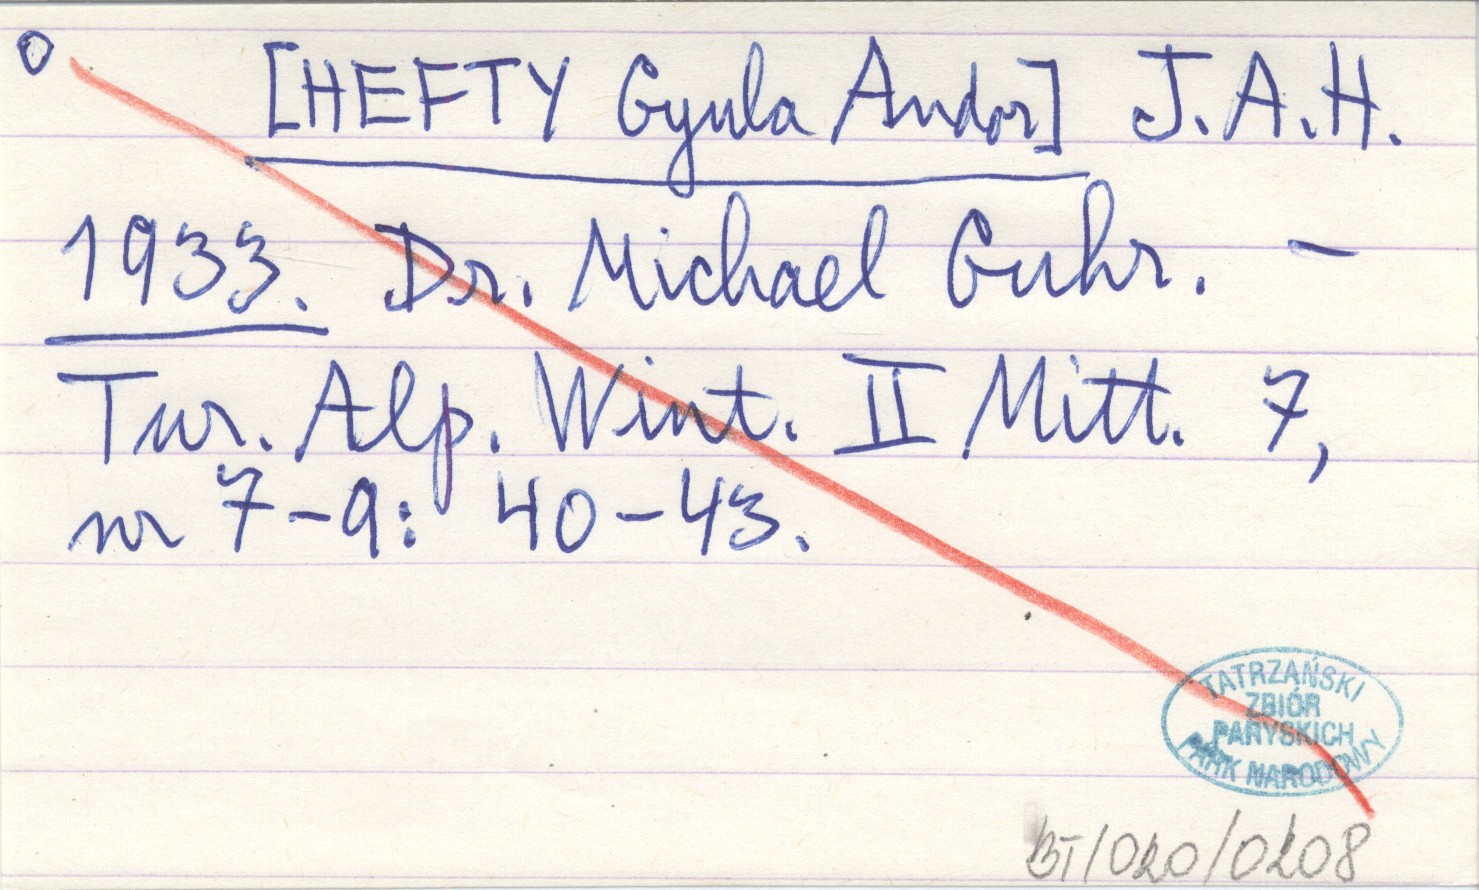 O [HEFTY Gyula Andor] J.A.H.
1933. Dr. Michael Guhr. –
Tur. Alp. Wint. II Mitt. 7,
nr 7–9: 40–43.
TATRZAŃSKI
ZBIÓR
PARYSKICH
PARK NARODOWY
BT/020/0208